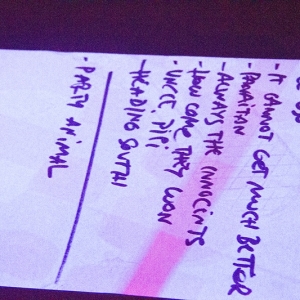 - IT CANNOT GET MUCH BETTER
- PARAITAN
- ALWAYS THE INNOCENTS
- HOW COME THEY WON
- UNCLE PIPI
- HEADING SOUTH
- PARTY ANIMAL